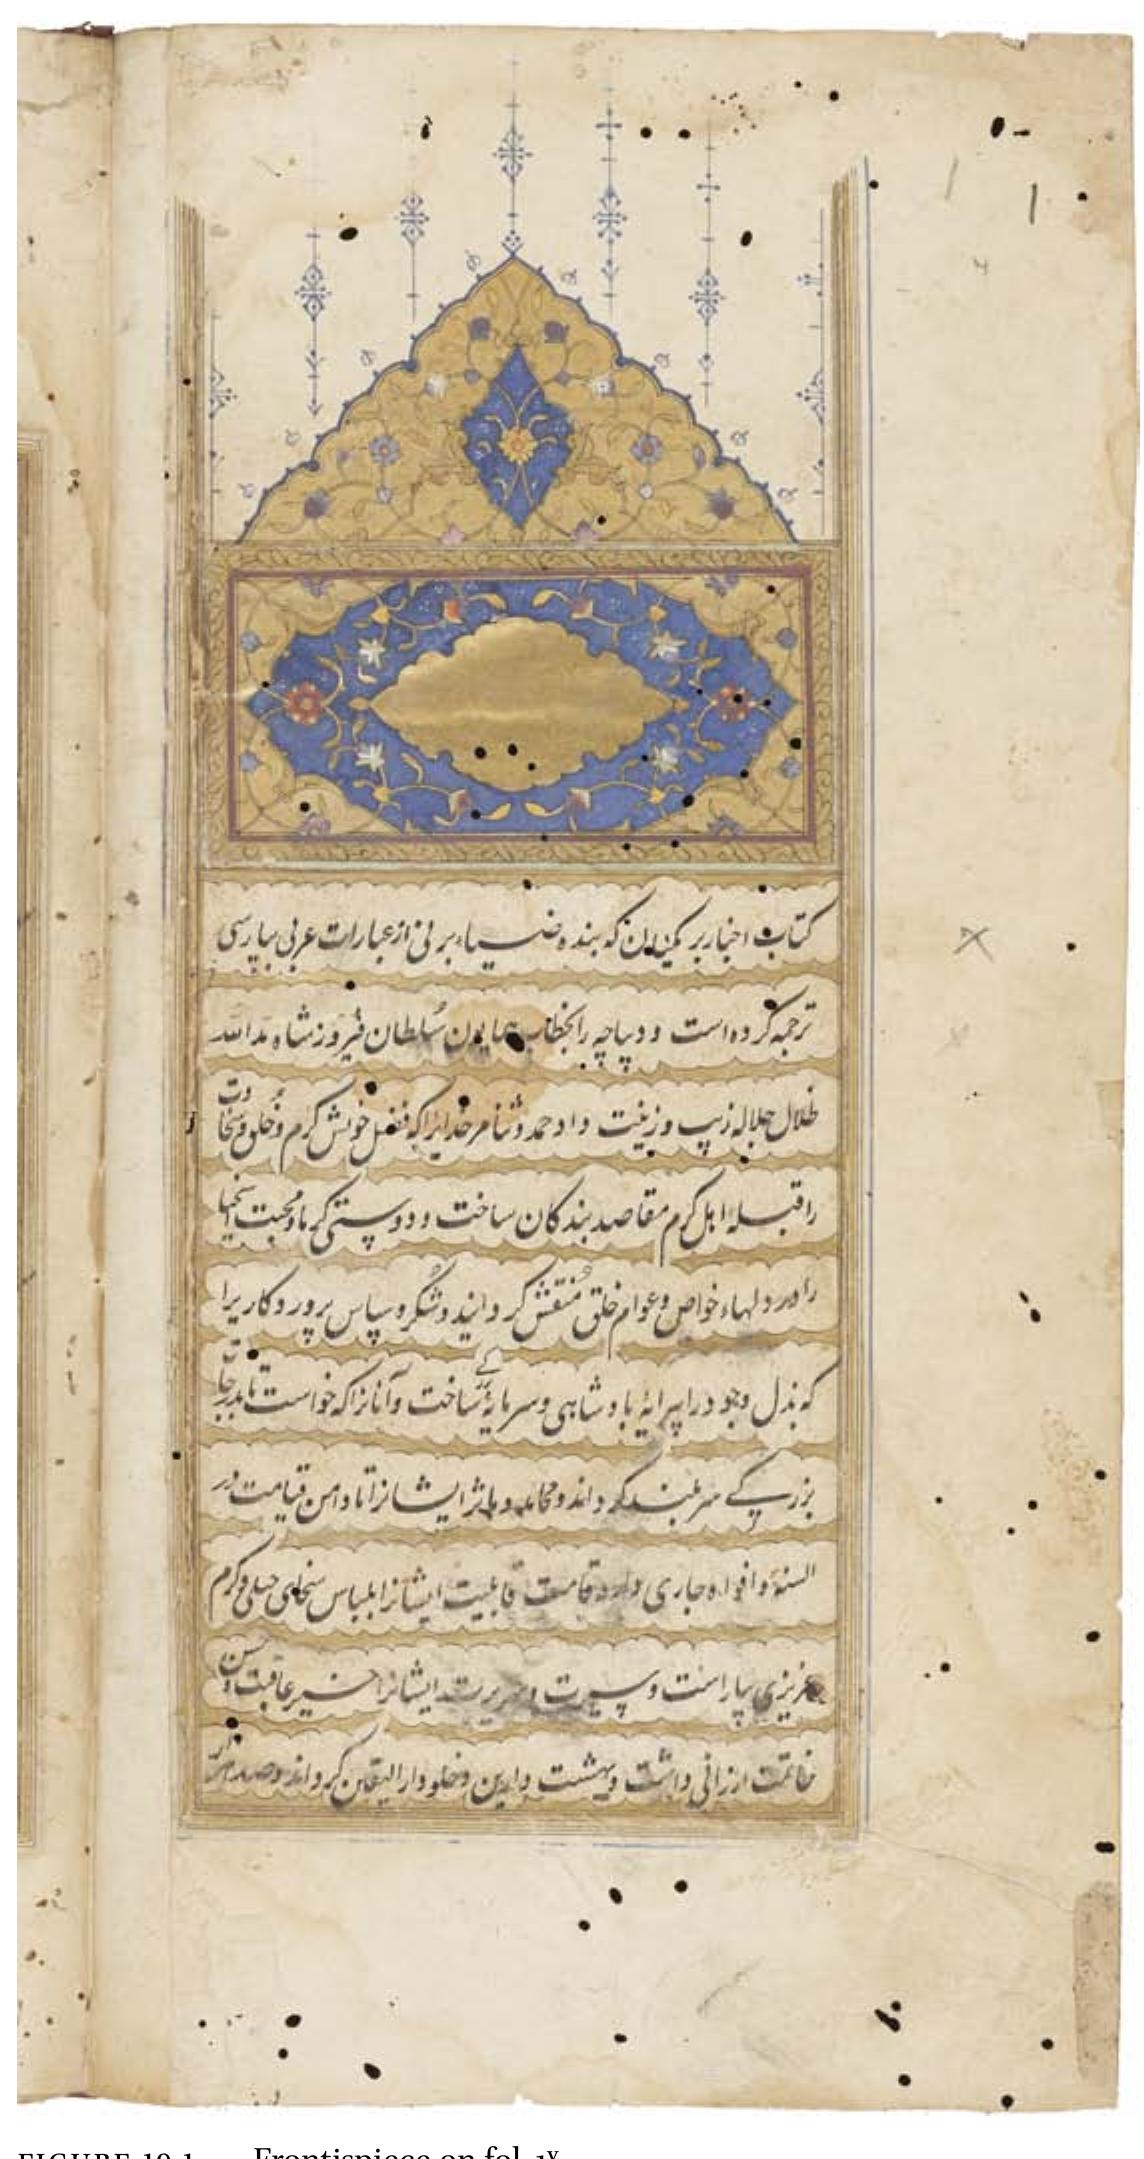 کتاب اخبار برمکیان که بنده ضیاء برنی از عبارات عربی بپارسی
ترجمه کرده است و دیباچه را بخطاب همایون سلطان فیروزشاه مد الله
ظلال جلاله زیب و زینت داد حمد و ثنا مر خدایراکه فضل خویش کرم و خلق و سخاوت
را قبلهٔ اهل کرم مقاصد بندکان ساخت و دوستی کرما و محبت اسخیا
را در دلهاء خواص و عوام خلق منتقش کردانید و شکر و سپاس پروردکاریرا
که بذل وجود را پیرایهٔ پادشاهی و سرمایهٔ ساخت و آنانراکه خواست تا بدرجات
بزرکے سربلند کرداند و محامد و مآثر ایشانرا تا دامن قیامت در
السنه و افواه جاری دارد قامت قابلیت ایشانرا بلباس سخای جبلی و کرم
غریزی بیاراست و سیرت و سریرت ایشانرا خیر عاقبت و حسن
خاتمت ارزانی داشت و بهشت دارین و خلود کرداند و صد هزار
FIGURE 10.1 Frontispiece on fol. 1v